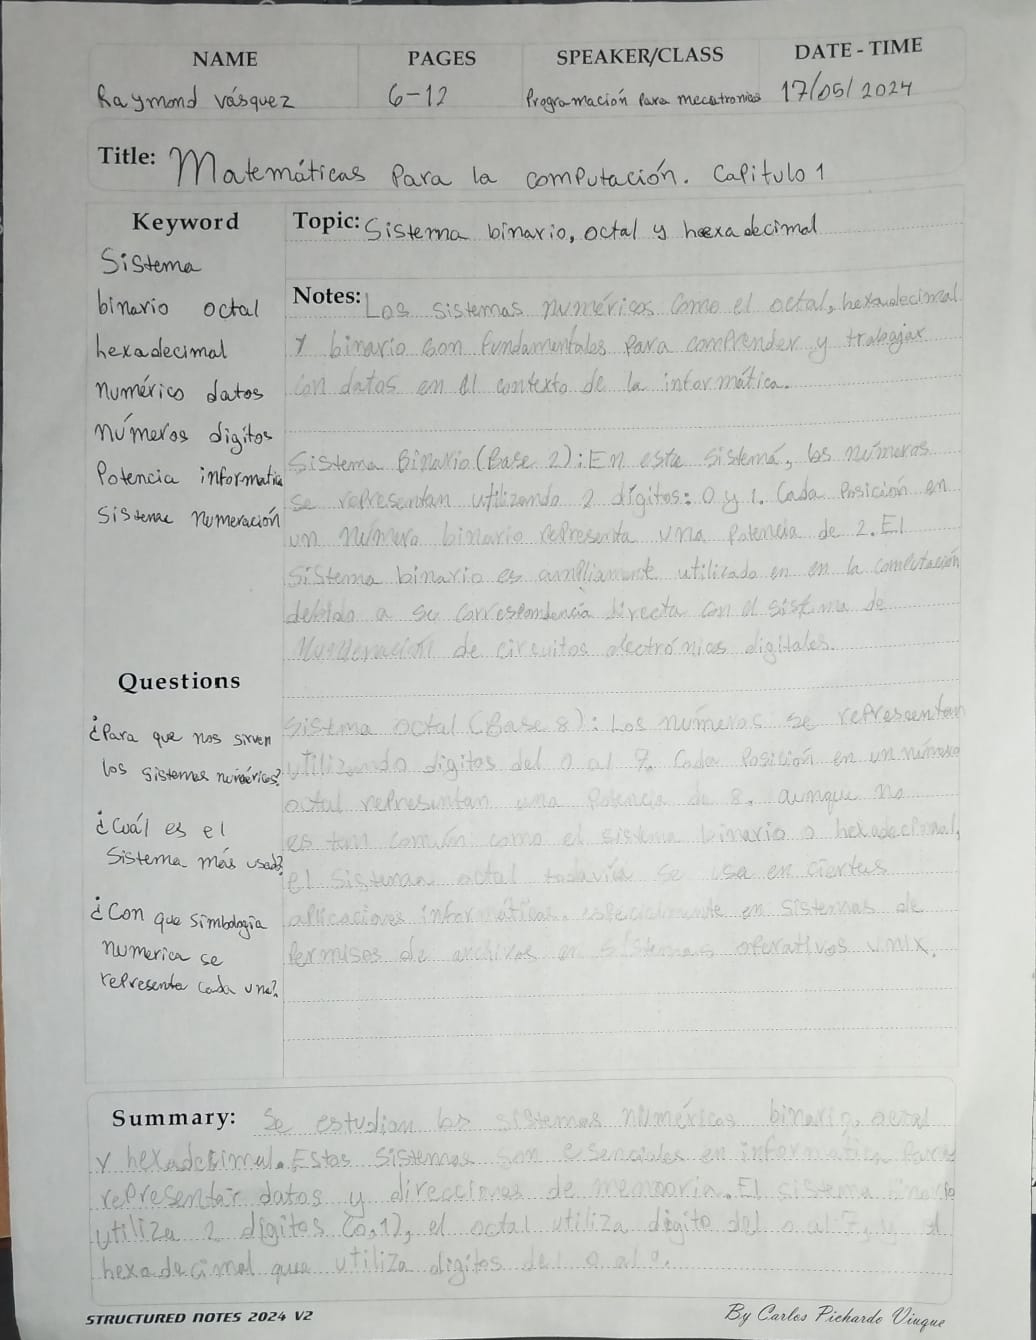 NAME PAGES SPEAKER/CLASS DATE - TIME
Raymond Vásquez 6-12 Programación para mecatronica 17/05/2024
Title: Matemáticas Para la computación. Capitulo 1
Keyword
Sistema
binario octal
hexadecimal
numérico datos
números digitos
Potencia informatica
Sistema numeración
Topic: Sistema binario, octal y hexadecimal
Notes: Los sistemas numéricos como el octal, hexadecimal
y binario son fundamentales para comprender y trabajar
con datos en el contexto de la informática.
Sistema Binario (Base 2): En este sistema, los números
se representan utilizando 2 dígitos: 0 y 1. Cada Posición en
un número binario representa una Potencia de 2. El
Sistema binario es ampliamente utilizado en en la computación
debido a su correspondencia directa con el sistema de
de circuitos electrónicos digitales.
Questions
¿Para que nos sirven
los sistemas numéricos?
¿Cuál es el
Sistema más usado?
¿Con que simbologia
numerica se
representa cada una?
Sistma octal (Base 8): Los números se representan
utilizando digitos del 0 al 7. Cada Posición en un número
octal representan una Potencia de 8. aunque no
es tan común como el sistema binario o hexadecimal,
el sisteman octal todavía se usa en ciertas
aplicaciones informáticas, especialmente en sistemas de
Permisos de archivos en sistemas operativos Unix.
Summary: Se estudian los sistemas numéricos binario, octal
y hexadecimal. Estos sistemas son esenciales en informática Para
representar datos y direcciones de memoria. El sistema binario
utiliza 2 dígitos (0,1), el octal utiliza dígito del 0 al 7, y el
hexadecimal que utiliza digitos del 0 al 9.
STRUCTURED NOTES 2024 V2 By Carlos Pichardo Viuque